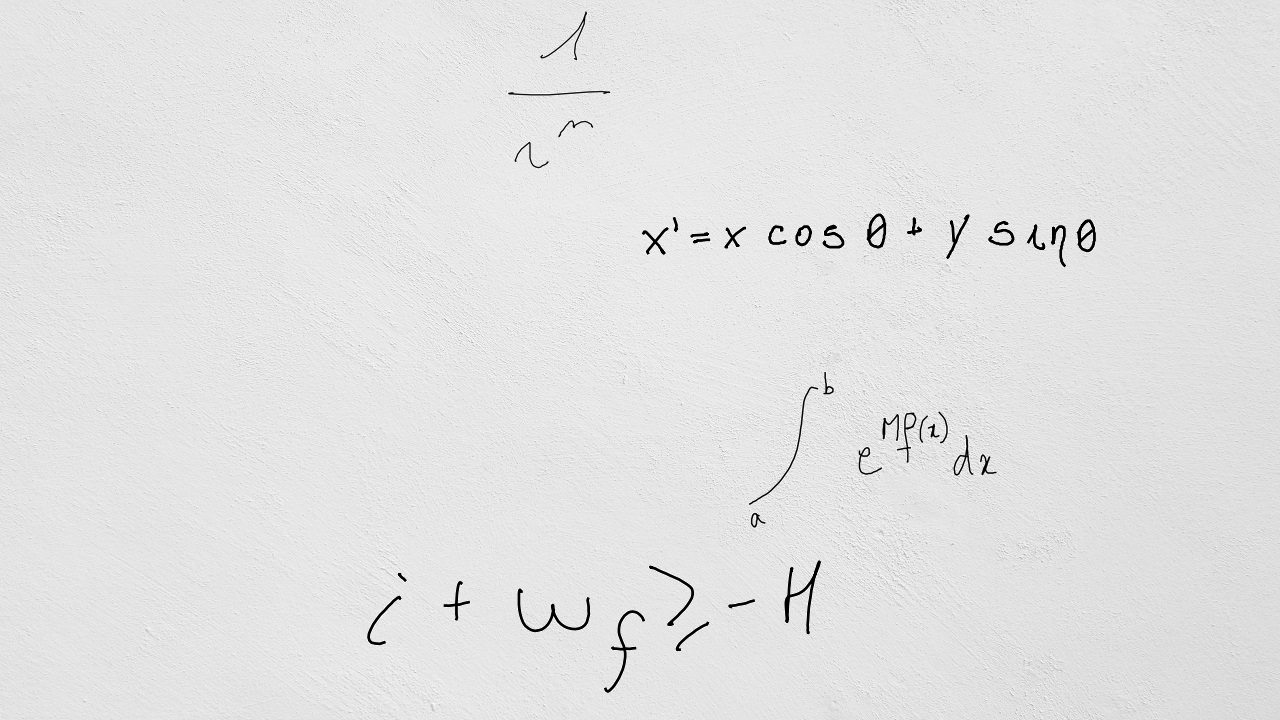 1/r^n
x' = x cos θ + y sin θ
∫_a^b e^{Mf(x)} dx
i + w_f ≥ -H